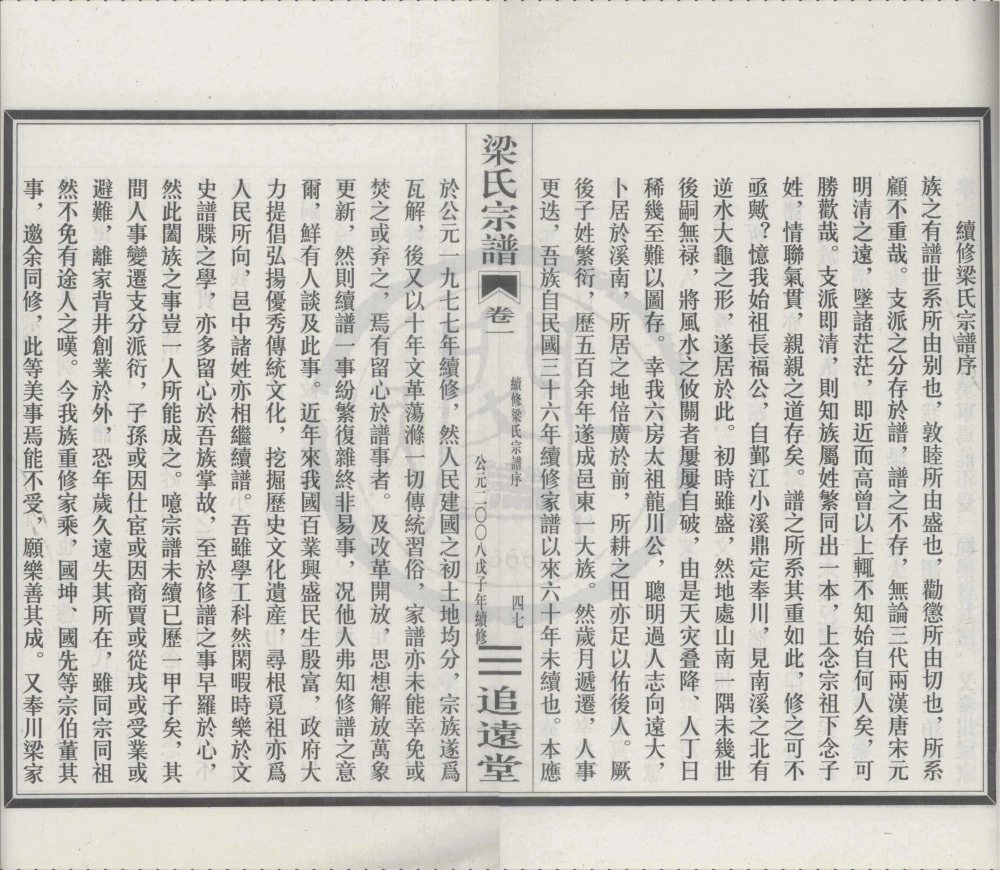 續修梁氏宗譜序
族之有譜世系所由別也，敦睦所由盛也，勸懲所由切也，所系
顧不重哉。支派之分存於譜，譜之不存，無論三代兩漢唐宋元
明清之遠，墜諸茫茫，即近而高曾以上輒不知始自何人矣，可
勝歡哉。支派即清，則知族屬姓繁同出一本，上念宗祖下念子
姓，情聯氣貫，親親之道存矣。譜之所系其重如此，修之可不
亟歟？憶我始祖長福公，自鄞江小溪鼎定奉川，見南溪之北有
逆水大龜之形，遂居於此。初時雖盛，然地處山南一隅未幾世
後嗣無禄，將風水之攸關者屢屢自破，由是天灾叠降、人丁日
稀幾至難以圖存。幸我六房太祖龍川公，聰明過人志向遠大，
卜居於溪南，所居之地倍廣於前，所耕之田亦足以佑後人。厥
後子姓繁衍，歷五百余年遂成邑東一大族。然歲月遞遷，人事
更迭，吾族自民國三十六年續修家譜以來六十年未續也。本應
梁氏宗譜
卷一
續修梁氏宗譜序
四七
公元二〇〇八戊子年續修
追遠堂
於公元一九七七年續修，然人民建國之初土地均分，宗族遂爲
瓦解，後又以十年文革蕩滌一切傳統習俗，家譜亦未能幸免或
焚之或弃之，焉有留心於譜事者。及改革開放，思想解放萬象
更新，然則續譜一事紛繁復雜終非易事，况他人弗知修譜之意
爾，鮮有人談及此事。近年來我國百業興盛民生殷富，政府大
力提倡弘揚優秀傳統文化，挖掘歷史文化遺産，尋根覓祖亦爲
人民所向，邑中諸姓亦相繼續譜。吾雖學工科然閑暇時樂於文
史譜牒之學，亦多留心於吾族掌故，至於修譜之事早羅於心，
然此闔族之事豈一人所能成之。噫宗譜未續已歷一甲子矣，其
間人事變遷支分派衍，子孫或因仕宦或因商賈或從戎或受業或
避難，離家背井創業於外，恐年歲久遠失其所在，雖同宗同祖
然不免有途人之嘆。今我族重修家乘，國坤、國先等宗伯董其
事，邀余同修，此等美事焉能不受，願樂善其成。又奉川梁家